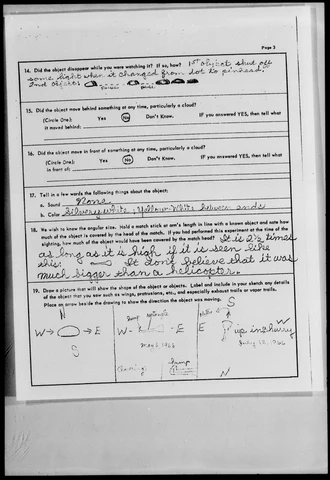 Page 3
14. Did the object disappear while you were watching it? If so, how? 1st object shut off
some light when it changed from dot to pinhead.
2nd object:
15. Did the object move behind something at any time, particularly a cloud?
(Circle One): Yes No Don't Know. IF you answered YES, then tell what
it moved behind:
16. Did the object move in front of something at any time, particularly a cloud?
(Circle One): Yes No Don't Know. IF you answered YES, then tell what
it moved in front of:
17. Tell in a few words the following things about the object:
a. Sound None
b. Color Silvery White, Yellow-White between ends
18. We wish to know the angular size. Hold a match stick at arm's length in line with a known object and note how
much of the object is covered by the head of the match. If you had performed this experiment at the time of the
sighting, how much of the object would have been covered by the match head? It is 2½ times
as long as it is high if it is seen like
this: It believe that it was
much bigger than a helicopter.
19. Draw a picture that will show the shape of the object or objects. Label and include in your sketch any details
of the object that you saw such as wings, protrusions, etc., and especially exhaust trails or vapor trails.
Place an arrow beside the drawing to show the direction the object was moving.
N S
W E W E E W
up in
S July 18, 1966
N